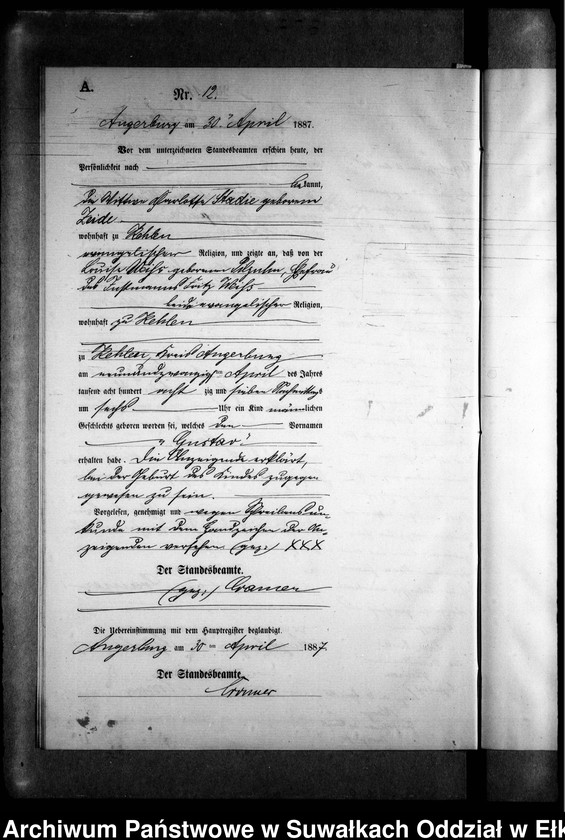 A.
Nr. 12.
Angerburg am 30ten April 1887.
Vor dem unterzeichneten Standesbeamten erschien heute, der
Persönlichkeit nach
bekannt,
die Wittwe Charlotte Stadie geborene
Zeide
wohnhaft zu Kehlen
evangelischer Religion, und zeigte an, daß von der
Louise Weiß geborenen, Ehefrau
des Instmanns Fritz Weiß
beide evangelischer Religion,
wohnhaft zu Kehlen
zu Kehlen, Kreis Angerburg
am neunundzwanzigsten April des Jahres
tausend acht hundert achtzig und sieben Nachmittags
um sechs Uhr ein Kind männlichen
Geschlechts geboren worden sei, welches den Vornamen
"Gustav"
erhalten habe. Die Anzeigende erklärt,
bei der Geburt des Kindes zugegen
gewesen zu sein.
Vorgelesen, genehmigt und wegen Schreibensun-
kunde mit dem Handzeichen der An-
zeigenden versehen (gez.) XXX
Der Standesbeamte.
(gez.) Cramer
Die Uebereinstimmung mit dem Hauptregister beglaubigt.
Angerburg am 30ten April 1887.
Der Standesbeamte.
Cramer
Archiwum Państwowe w Suwałkach Oddział w Ełk